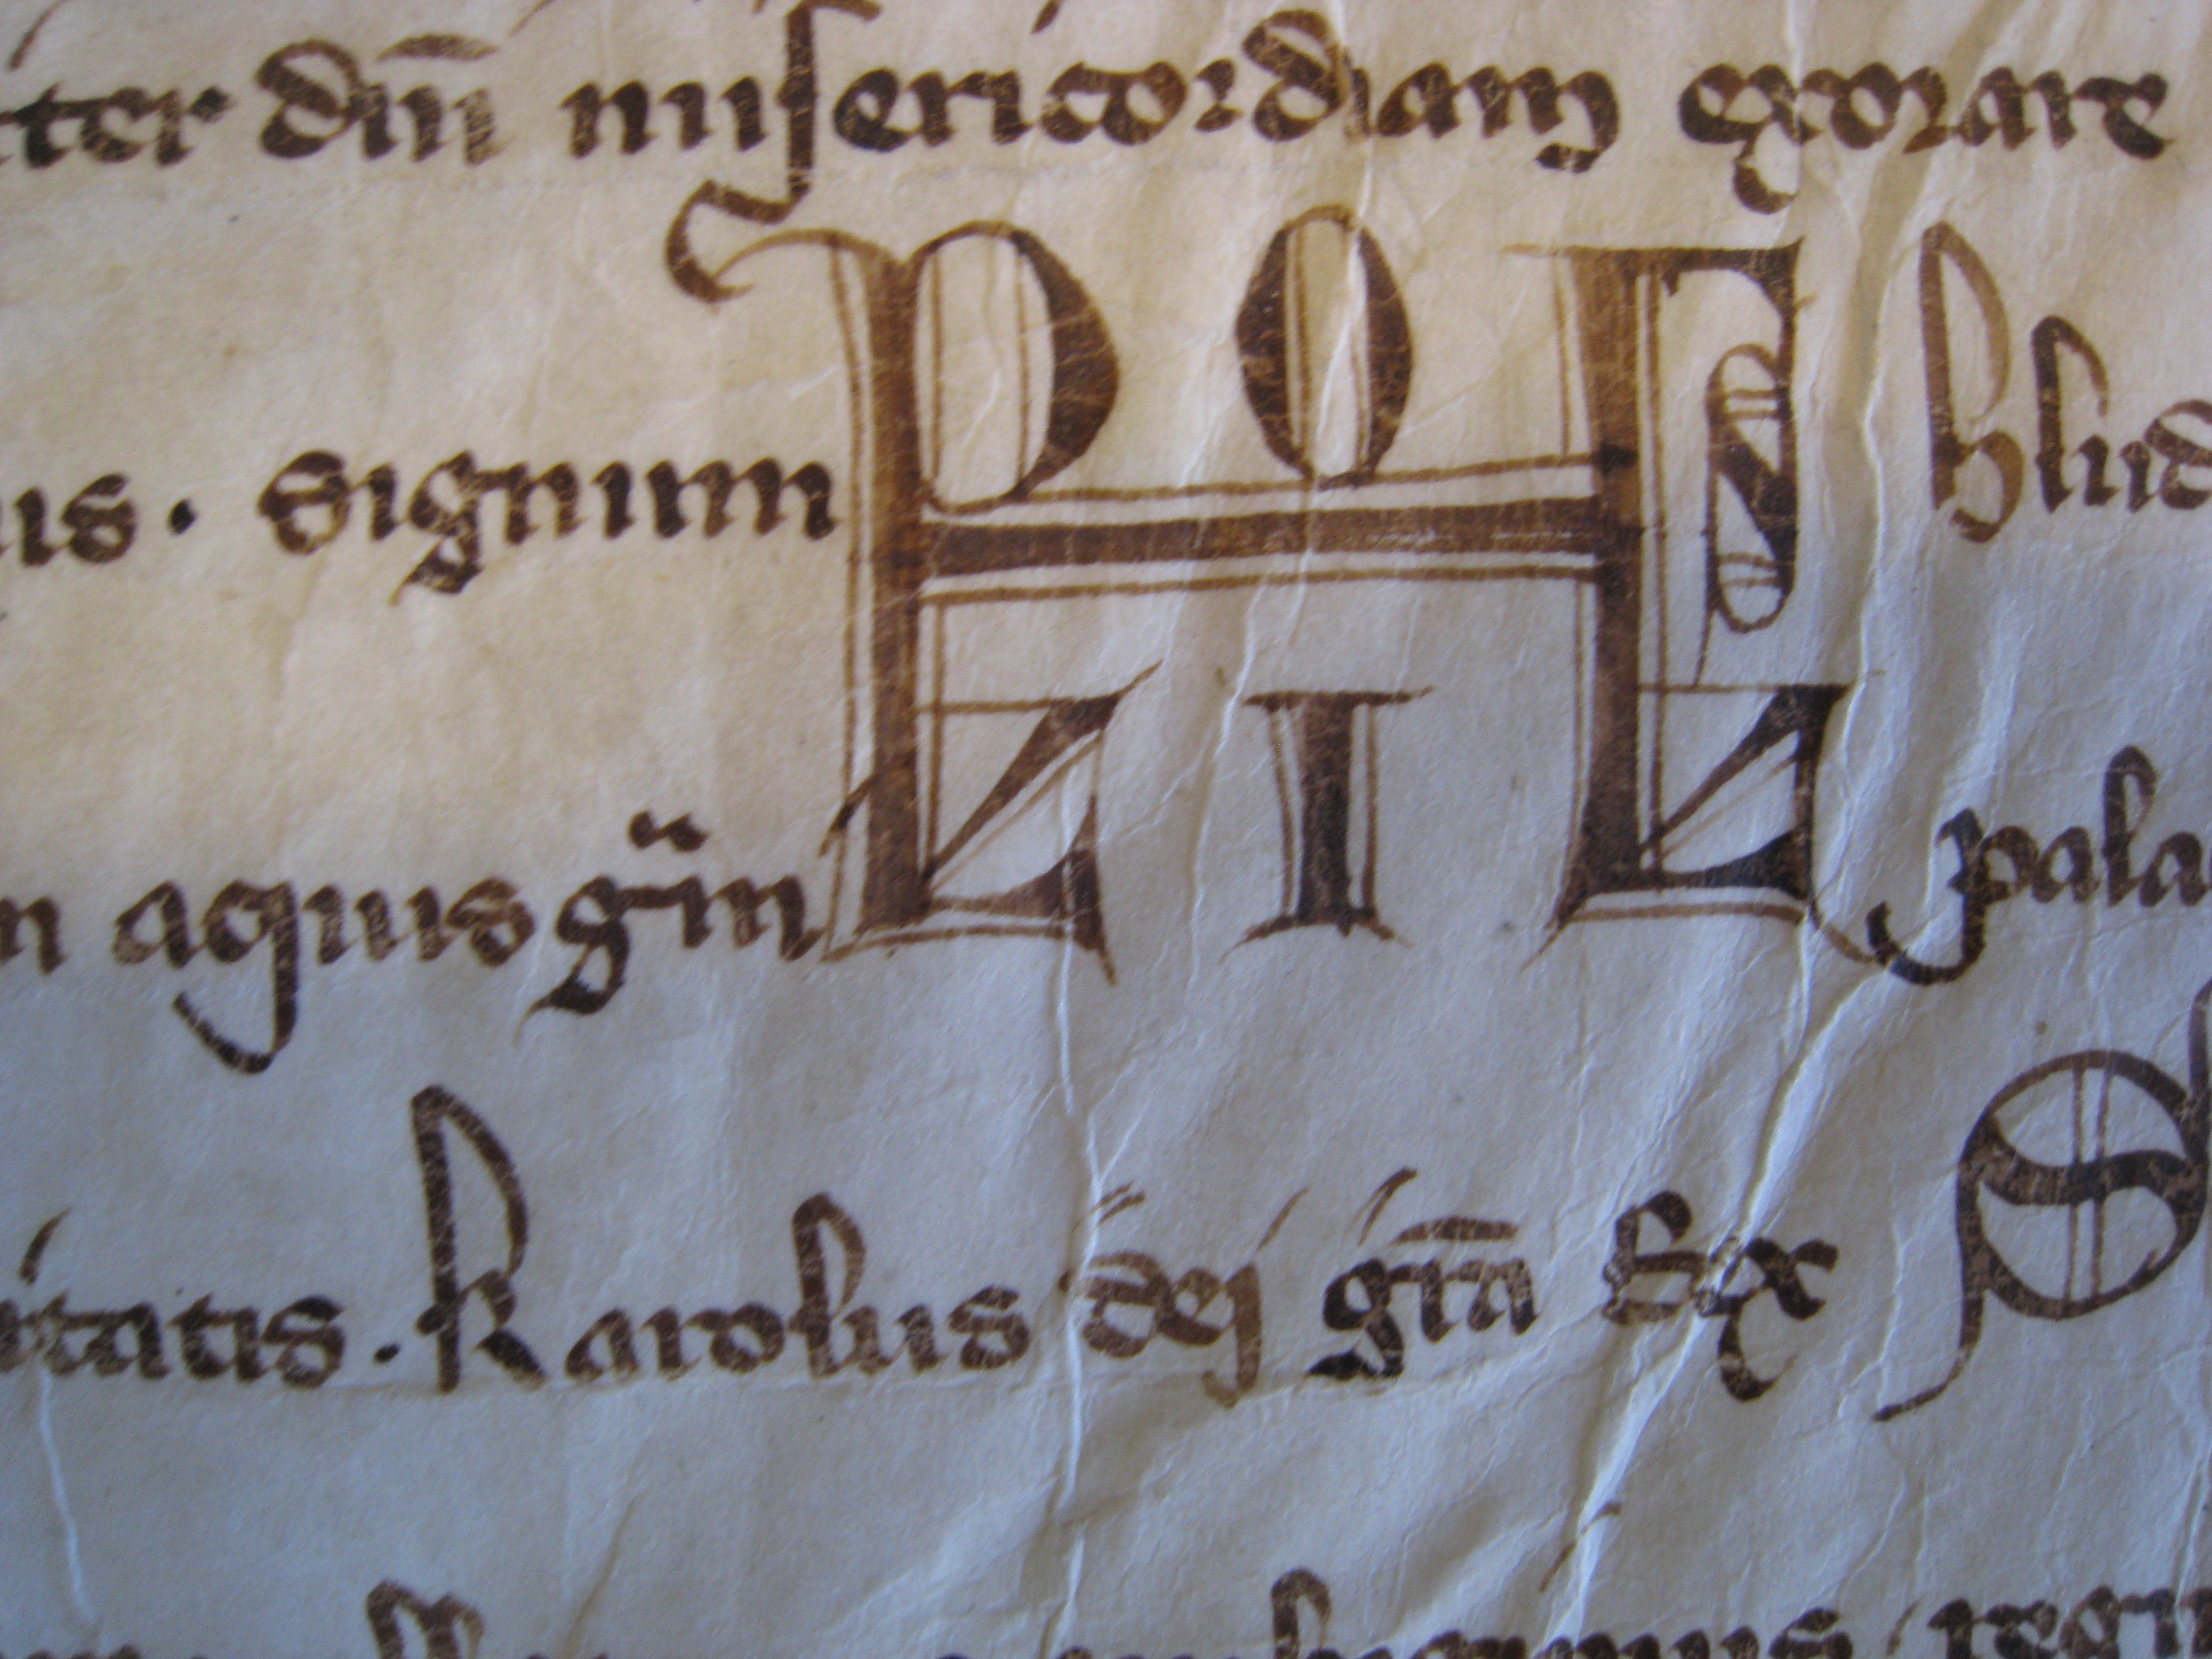 ter dn̄i misericordiam exorare
us. signum hlud
n aquisgrm pala
itatis. Karolus dej gr̄a Rex S